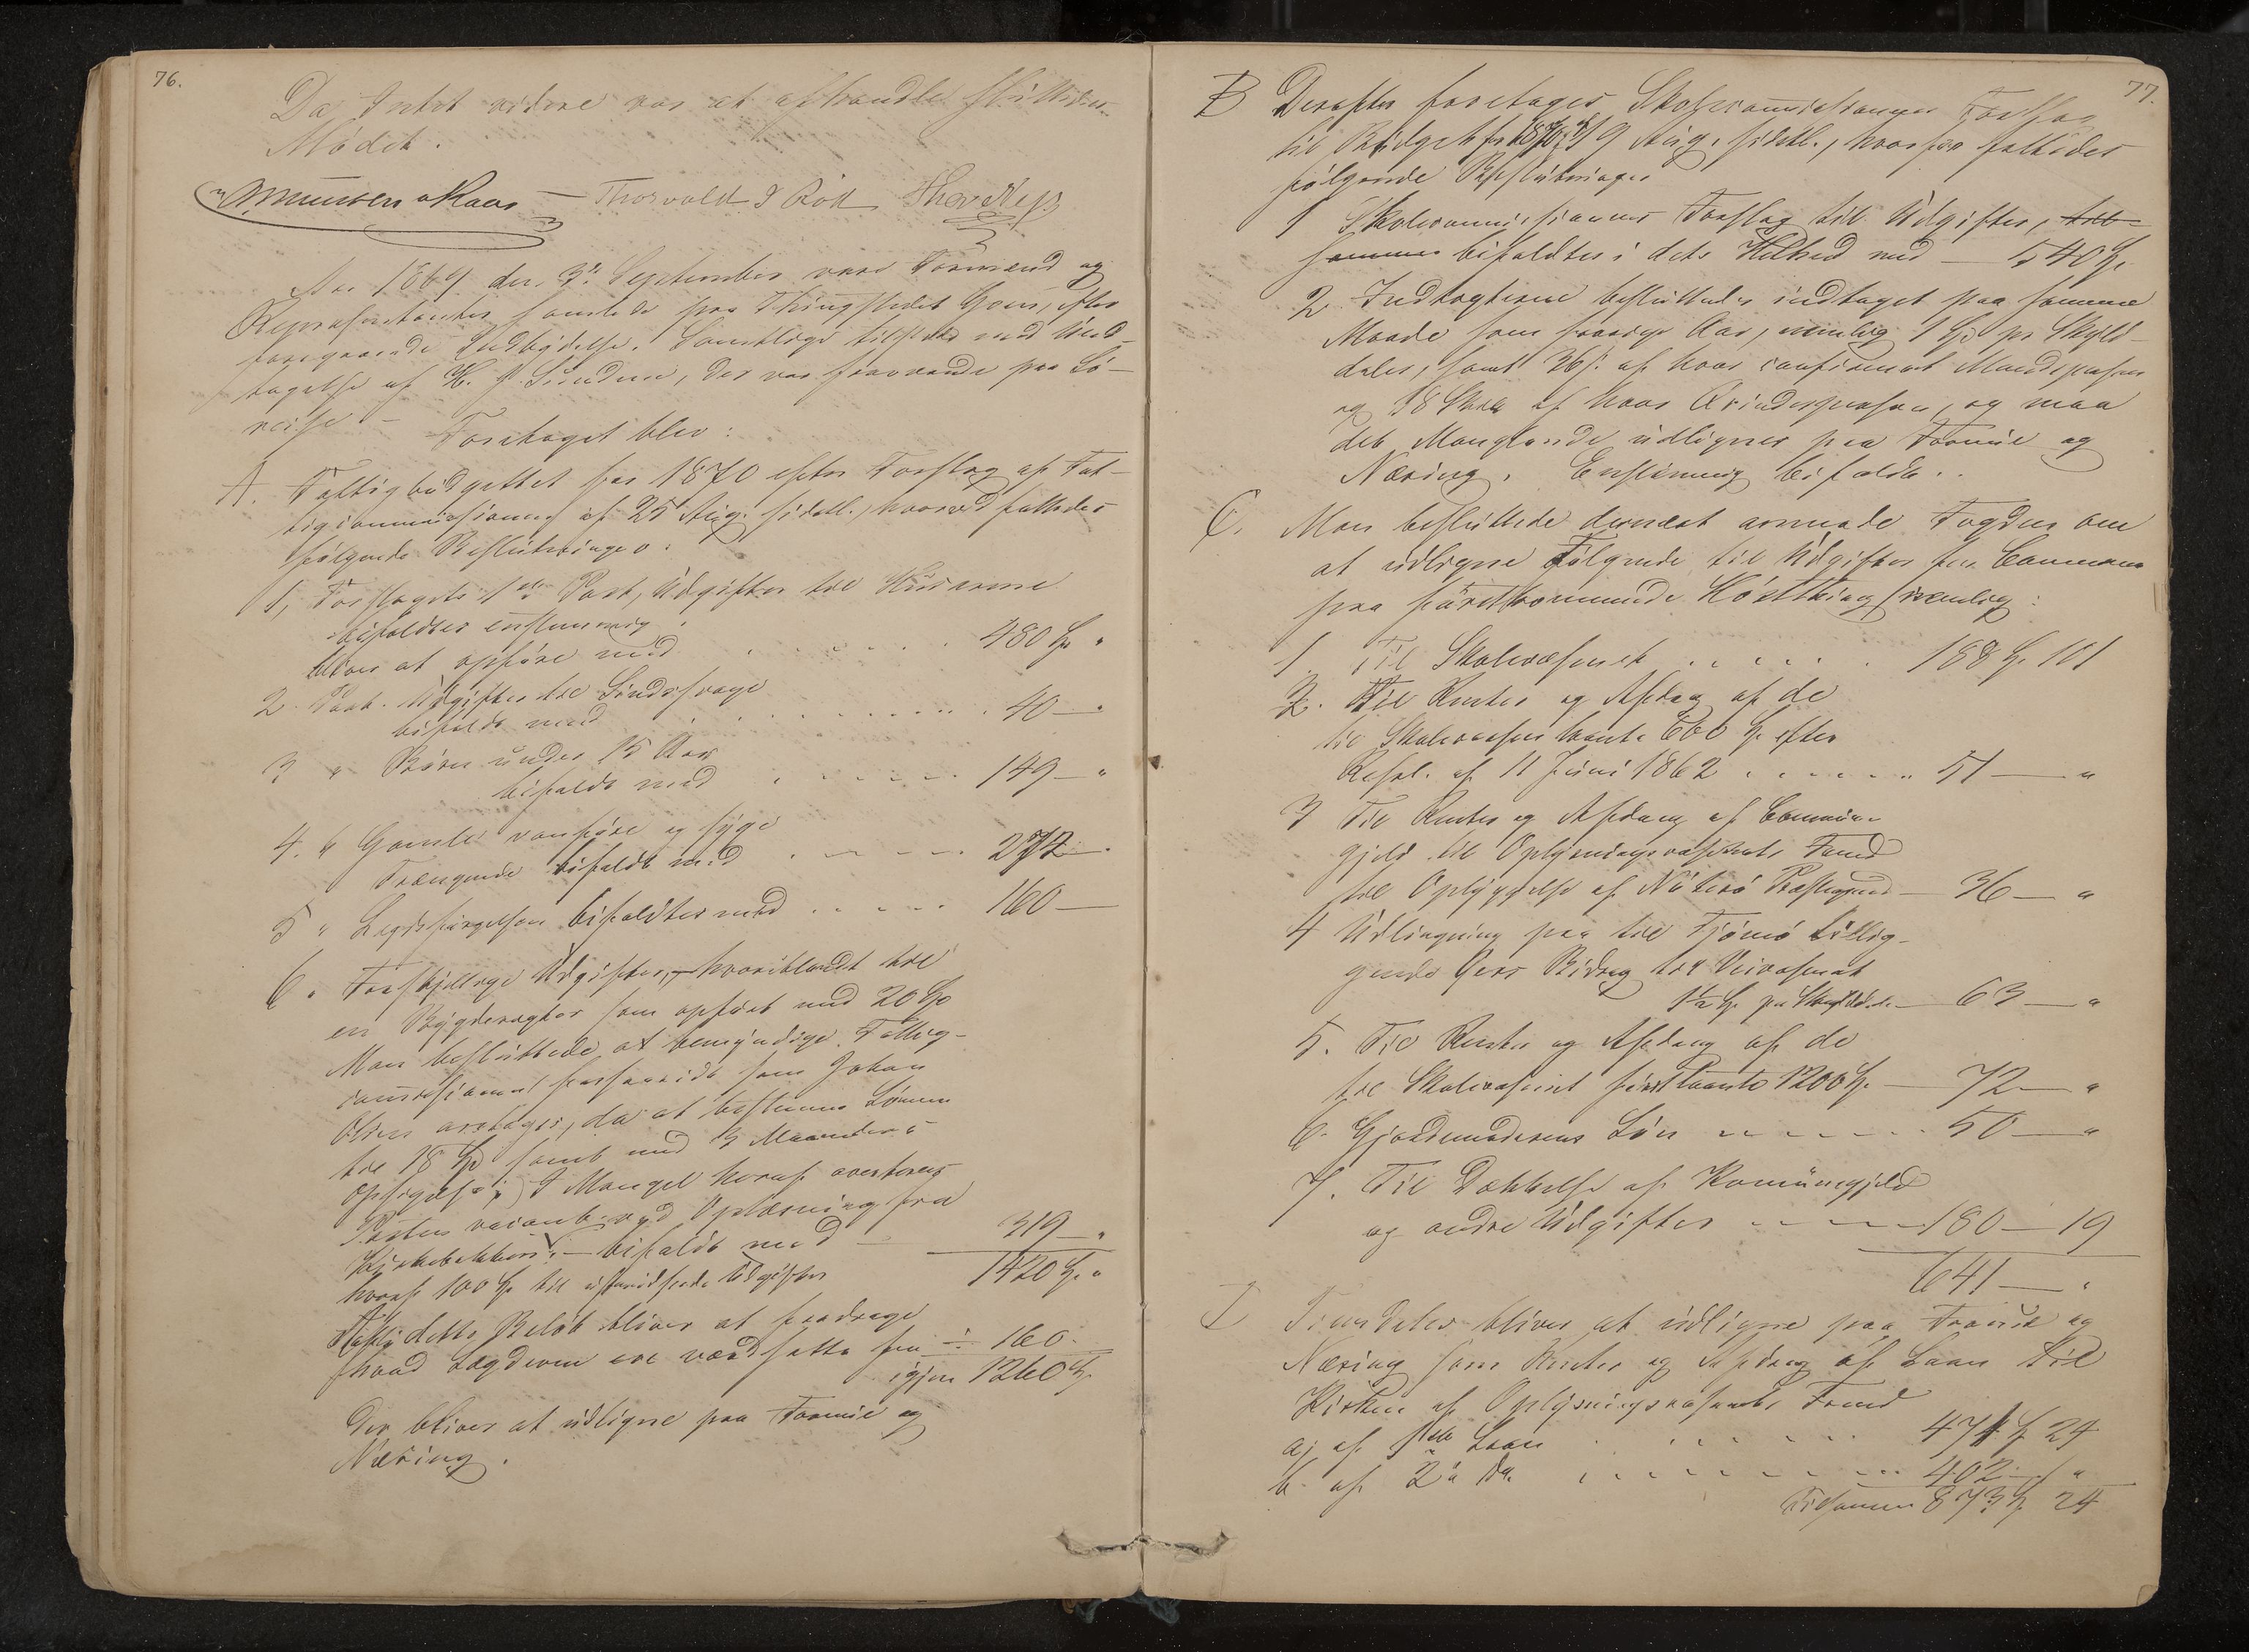 76.
Da Intet videre var at afhandle sluttedes
Mødet.
Thorvald I Röd
Aar 1869 den 3die September vare Formænd og
Repræsentanter samlede paa Thingstedet Hjem, efter
foregaaende Indbydelse. Samtlige tilstede med Und-
tagelse af H. J. Sundene, der var fraværende paa Sø-
reise - Foretaget blev:
A. Fattigbudgettet for 1870 efter Forslag af Fat-
tigcommissionen af 25 Aug. sidstl., hvorved fattedes
følgende Beslutninger:
1, Forslagets 1ste Post, Udgifter til Husarme
bifaldtes enstemmig
bliver at opføre med . . . . . 480 Sp. "
2. Post. Udgifter til Sindssvage
bifaldt med . . . . . 40 — "
3 " Børn under 15 Aar
bifaldt med . . . . . 149 — "
4. " Gamle vanføre og syge
Trængende bifaldt med . . . . 272 — .
5 " Lægdsforsørgelsen bifaldtes med . . . . . 160 —
6. Forskjellige Udgifter, — hvoriblandt til
en Bygdevægter som opført med 20 Sp
Man besluttede at bemyndige Fattig-
commissionen forsaavidt som Johan
Olsen antages, da at bestemme Lønnen
til 18 Sp samt med 3 Maaneders
Opsigelse; I Mangel heraf averteres
Posten vacant ved Oplæsning fra
Kirkebakken. — bifaldt med — 319 — "
hvoraf 100 Sp. til uforudseede Udgifter 1420 Sp. "
dette Beløb bliver at fradrage
hvad Lægderne ere værdsatte for ÷ 160.
igjen 1260 Sp.
Der bliver at udligne paa Formue og
Næring.
77.
B Derefter foretages Skolecommissionens Forslag
til Budget for 1870 af 9 Aug. sidstl., hvorfor fattedes
følgende Beslutninger
1 Skolecommissionens Forslag till Udgifter,
bifaldtes i dets Helhed med — 540 Sp.
2. Indtægterne besluttedes indtaget paa samme
Maade som forrige Aar, nemlig 1 Sp pr Skyld-
daler, samt 36 s. af hver confirmeret Mandsperson
og 18 Skill af hver Qvindeperson, og maa
det Manglende udlignes paa Formue og
Næring. Enstemmig bifaldt.
C. Man besluttede dernæst anmode Fogden om
at udligne Følgende til Udgifter for Communen
paa førstkommende Høstthing, nemlig:
1. Til Skolevæsenet . . . . . 188 Sp. 101
2. Til Renter og Afdrag af de
til Skolevæsenet laante 600 Sp. efter
Resol. af 11 Juni 1862 . . . . . 51 — "
3 Til Renter og Afdrag af Commune-
gjeld til Oplysningsvæsenets Fond
til Opbyggelse af Nøterø Præstegaard — 36 — "
4 Udligning paa til Tjømø tillig-
gende Øers Bidrag til Veivæsenet
1½ Sp. pr Skylddl. — 63 — "
5. Til Renter og Afdrag af de
til Skolevæsenet først laante 1200 Sp. — 72 — "
6. Gjordemoderens Løn . . . . . 50 — "
7. Til Dækkelse af Kommunegjeld
og andre Udgifter . . . . — 180 — 19
641 — "
bliver at udligne paa Formue og
Næring som Renter og Afdrag af Laan til
Kirken af Oplysningsvæsenets Fond
a; af 1ste Laan . . . . . 471 Sp 24
b. af 2det do. . . . . . 402 — "
Tilsammen 873 Sp. 24